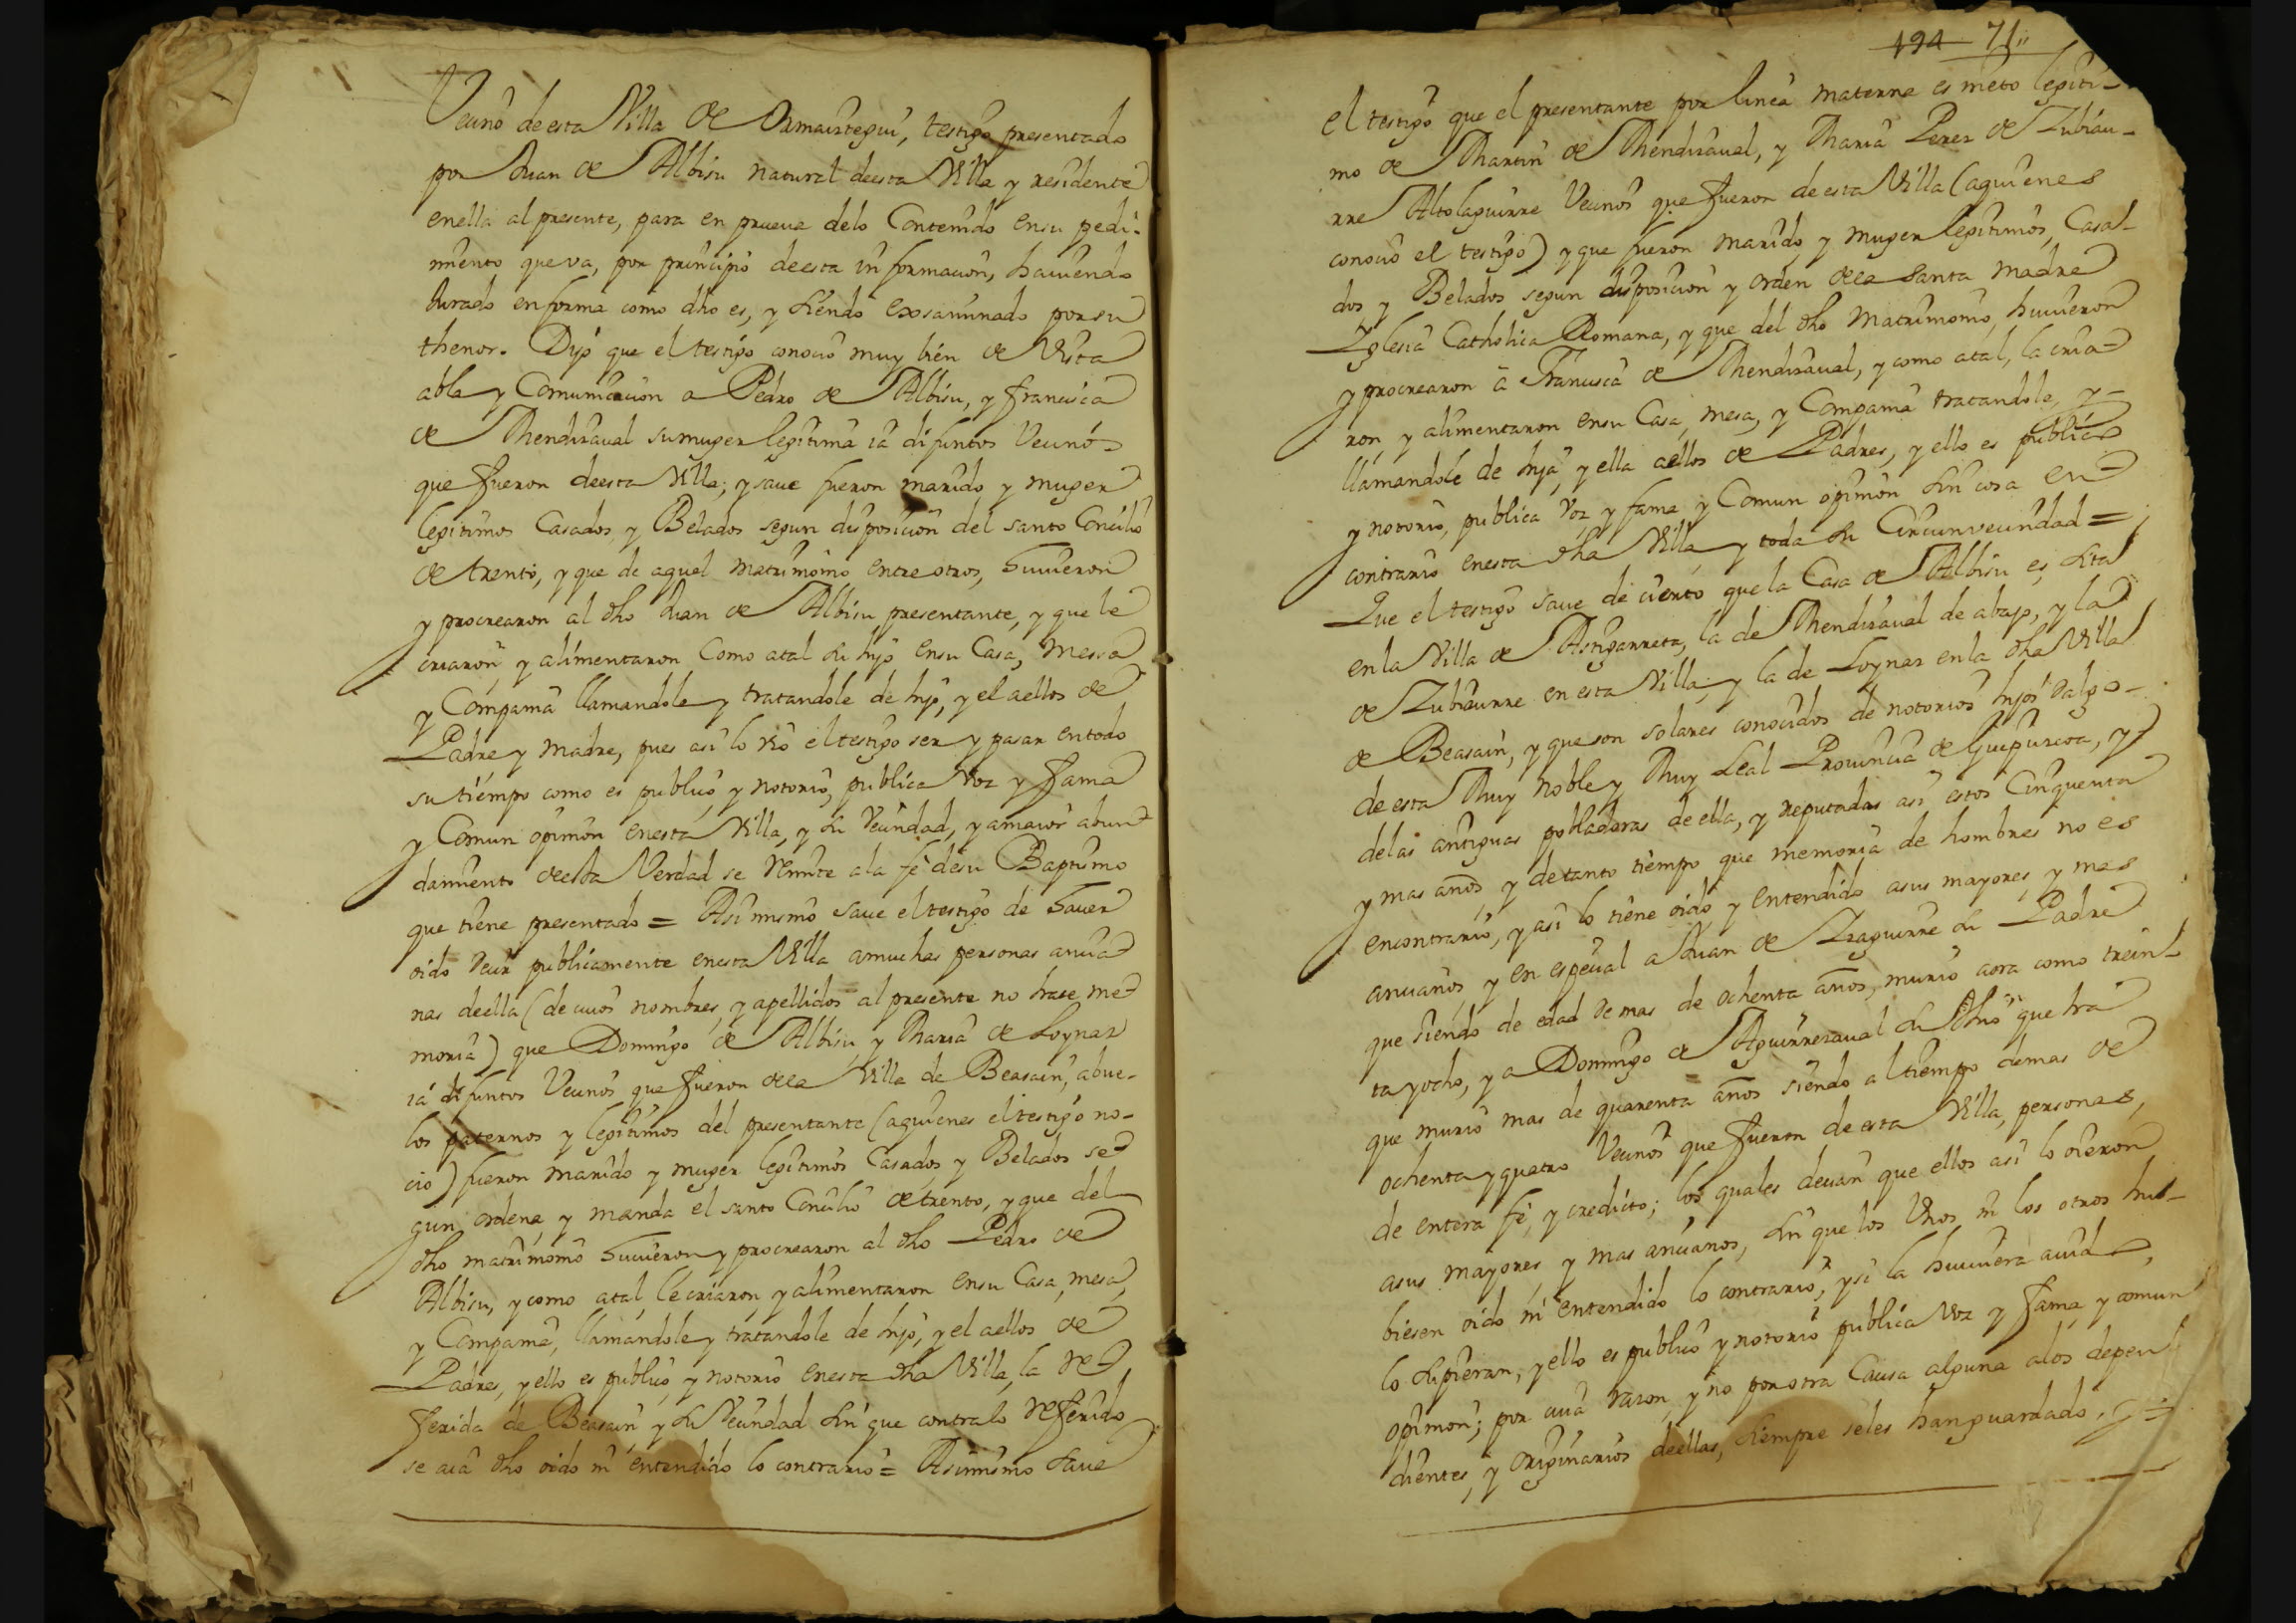 Vecino de esta Villa de Ormaiztegui, testigo presentado
por Juan de Albisu natural deesta Villa y residente
enella al presente, para en prueva delo Contenido ensu pedi-
miento que va, por principio deesta informacion, haviendo
Jurado en forma como dho es, y siendo exsaminado por su
thenor. Dijo que el testigo conocio muy bien de Vista
abla y Comunicacion a Pedro de Albisu, y francisca
de Mendizaval su muger legitima ia difuntos Vecinos
que fueron deesta Villa; y save fueron marido y muger
legitimos Casados y Belados segun disposicion del santo Concilio
de trento, y que de aquel matrimoino entre otros, huvieron
y procrearon al dho Juan de Albisu presentante, y que le
criaron y alimentaron Como atal su hijo ensu Casa, Messa
y Compania llamandole y tratandole de hijo, y el aellos de
Padre y madre, pues asi lo vio el testigo ser y pasar en todo
su tiempo como es publico y notorio, publica Voz y fama
y Comun opinion enesta Villa, y su Vecindad, y amaior abun
damiento deesta Verdad se remite ala fe desu Baptismo
que tiene presentado = Asimismo save el testigo de haver
oido decir publicamente enesta Villa amuchas personas ancia
nas deella (de cuios nombres, y apellidos al presente no hace me
moria) que Domingo de Albisu y Maria de Loynaz
ia difuntos Vecinos que fueron dela Villa de Beasain, abue-
los paternos y legitimos del presentante (aquienes el testigo no-
cio) fueron marido y muger legitimos Casados y Belados se
gun ordena y manda el santo Concilio de trento, y que del
dho matrimonio huvieron y procrearon al dho Pedro de
Albisu, y como atal le criaron y alimentaron ensu Casa, mesa,
y Compania, llamandole y tratandole de hijo, y el aellos de
Padres, y ello es publico y notorio enesta dha Villa, la re
ferida de Beasain y su Vecindad sin que contra lo referido
se aia dho oido ni entendido lo contrario = Asimismo save
194 71
el testigo que el presentante por linea materna es nieto legiti-
mo de Martin de Mendizaval, y Maria Perez de Zubiau-
rre Altolaguirre Vecinos que fueron de esta Villa (aquienes
conocio el testigo) y que fueron marido y muger legitimos, Casa-
dos y Belados segun disposicion y orden dela santa madre
Iglesia Catholica Romana, y que del dho Matrimonio, huvieron
y procrearon a Francisca de Mendizaval, y como atal, la cria
ron y alimentaron ensu Casa, mesa, y Compania tratandole, y
llamandole de hija, y ella aellos de Padres, y ello es publico
y notorio, publica Voz y fama y Comun opinion sin cosa en
contrario enesta dha Villa y toda su Circunvecindad =
Que el testigo save de cierto que la Casa de Albisu es sita
en la Villa de Astigarreta, la de Mendizaval de abajo, y la
de Zubiaurre en esta Villa, y la de Loynaz en la dha Villa
de Beasain, y que son solares conocidos de notorios hijos dalgo
de esta Muy Noble y Muy Leal Provincia de Guipuzcoa, y
delas antiguas pobladoras de ella, y reputadas asi estos Cinquenta
y mas años y detanto tiempo que memoria de hombres no es
encontrario, y asi lo tiene oido y entendido asus mayores y mas
ancianos, y en especial a Juan de Izaguirre su Padre
que siendo de edad de mas de ochenta años, murio aora como trein-
ta y ocho, y a Domingo de Aguirrezaval su thio que ha
que murio mas de quarenta años siendo al tiempo demas de
ochenta y quatro Vecinos que fueron de esta Villa, personas
de entera fe, y credicto; los quales decian que ellos asi lo oieron
asus mayores, y mas ancianos, sin que los Unos ni los otros hu-
biesen oido ni entendido lo contrario, y si la huviera avido
lo supieran, y ello es publico y notorio publica Voz y fama, y comun
opinion; por cuia razon, y no por otra Causa alguna alos depen
dientes y originarios deellas, siempre seles han guardado, y